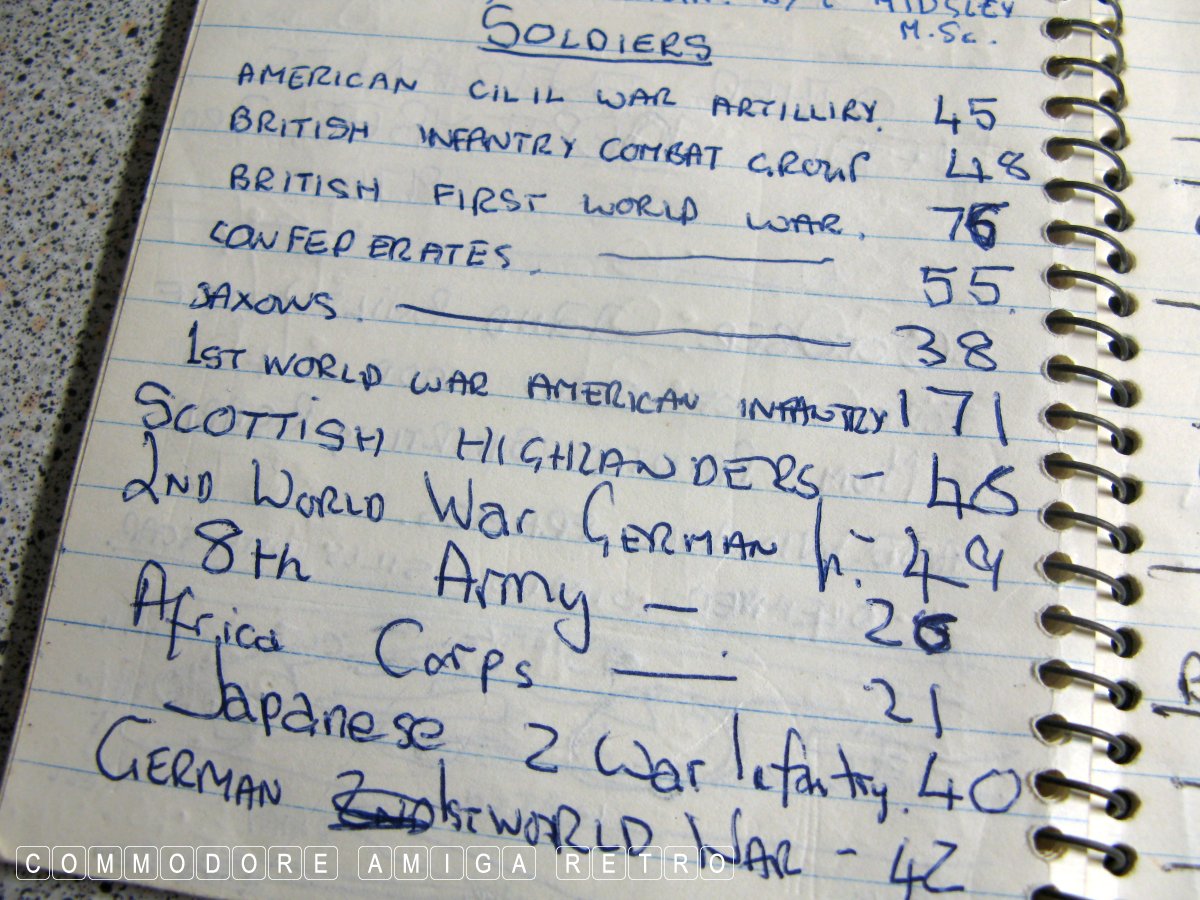 MIDSLEY
M.Sc.
SOLDIERS
AMERICAN CILIL WAR ARTILLIRY. 45
BRITISH INFANTRY COMBAT GROUP 48
BRITISH FIRST WORLD WAR. 76
CONFEDERATES. 55
SAXOWS. 38
1ST WORLD WAR AMERICAN INFANTRY 171
SCOTTISH HIGHLANDERS - 46
2ND WORLD War GERMAN In. 49
8th Army - 26
Africa Corps - 21
Japanese 2 War Infantry. 40
GERMAN 1st WORLD WAR - 42
COMMODORE AMIGA RETRO